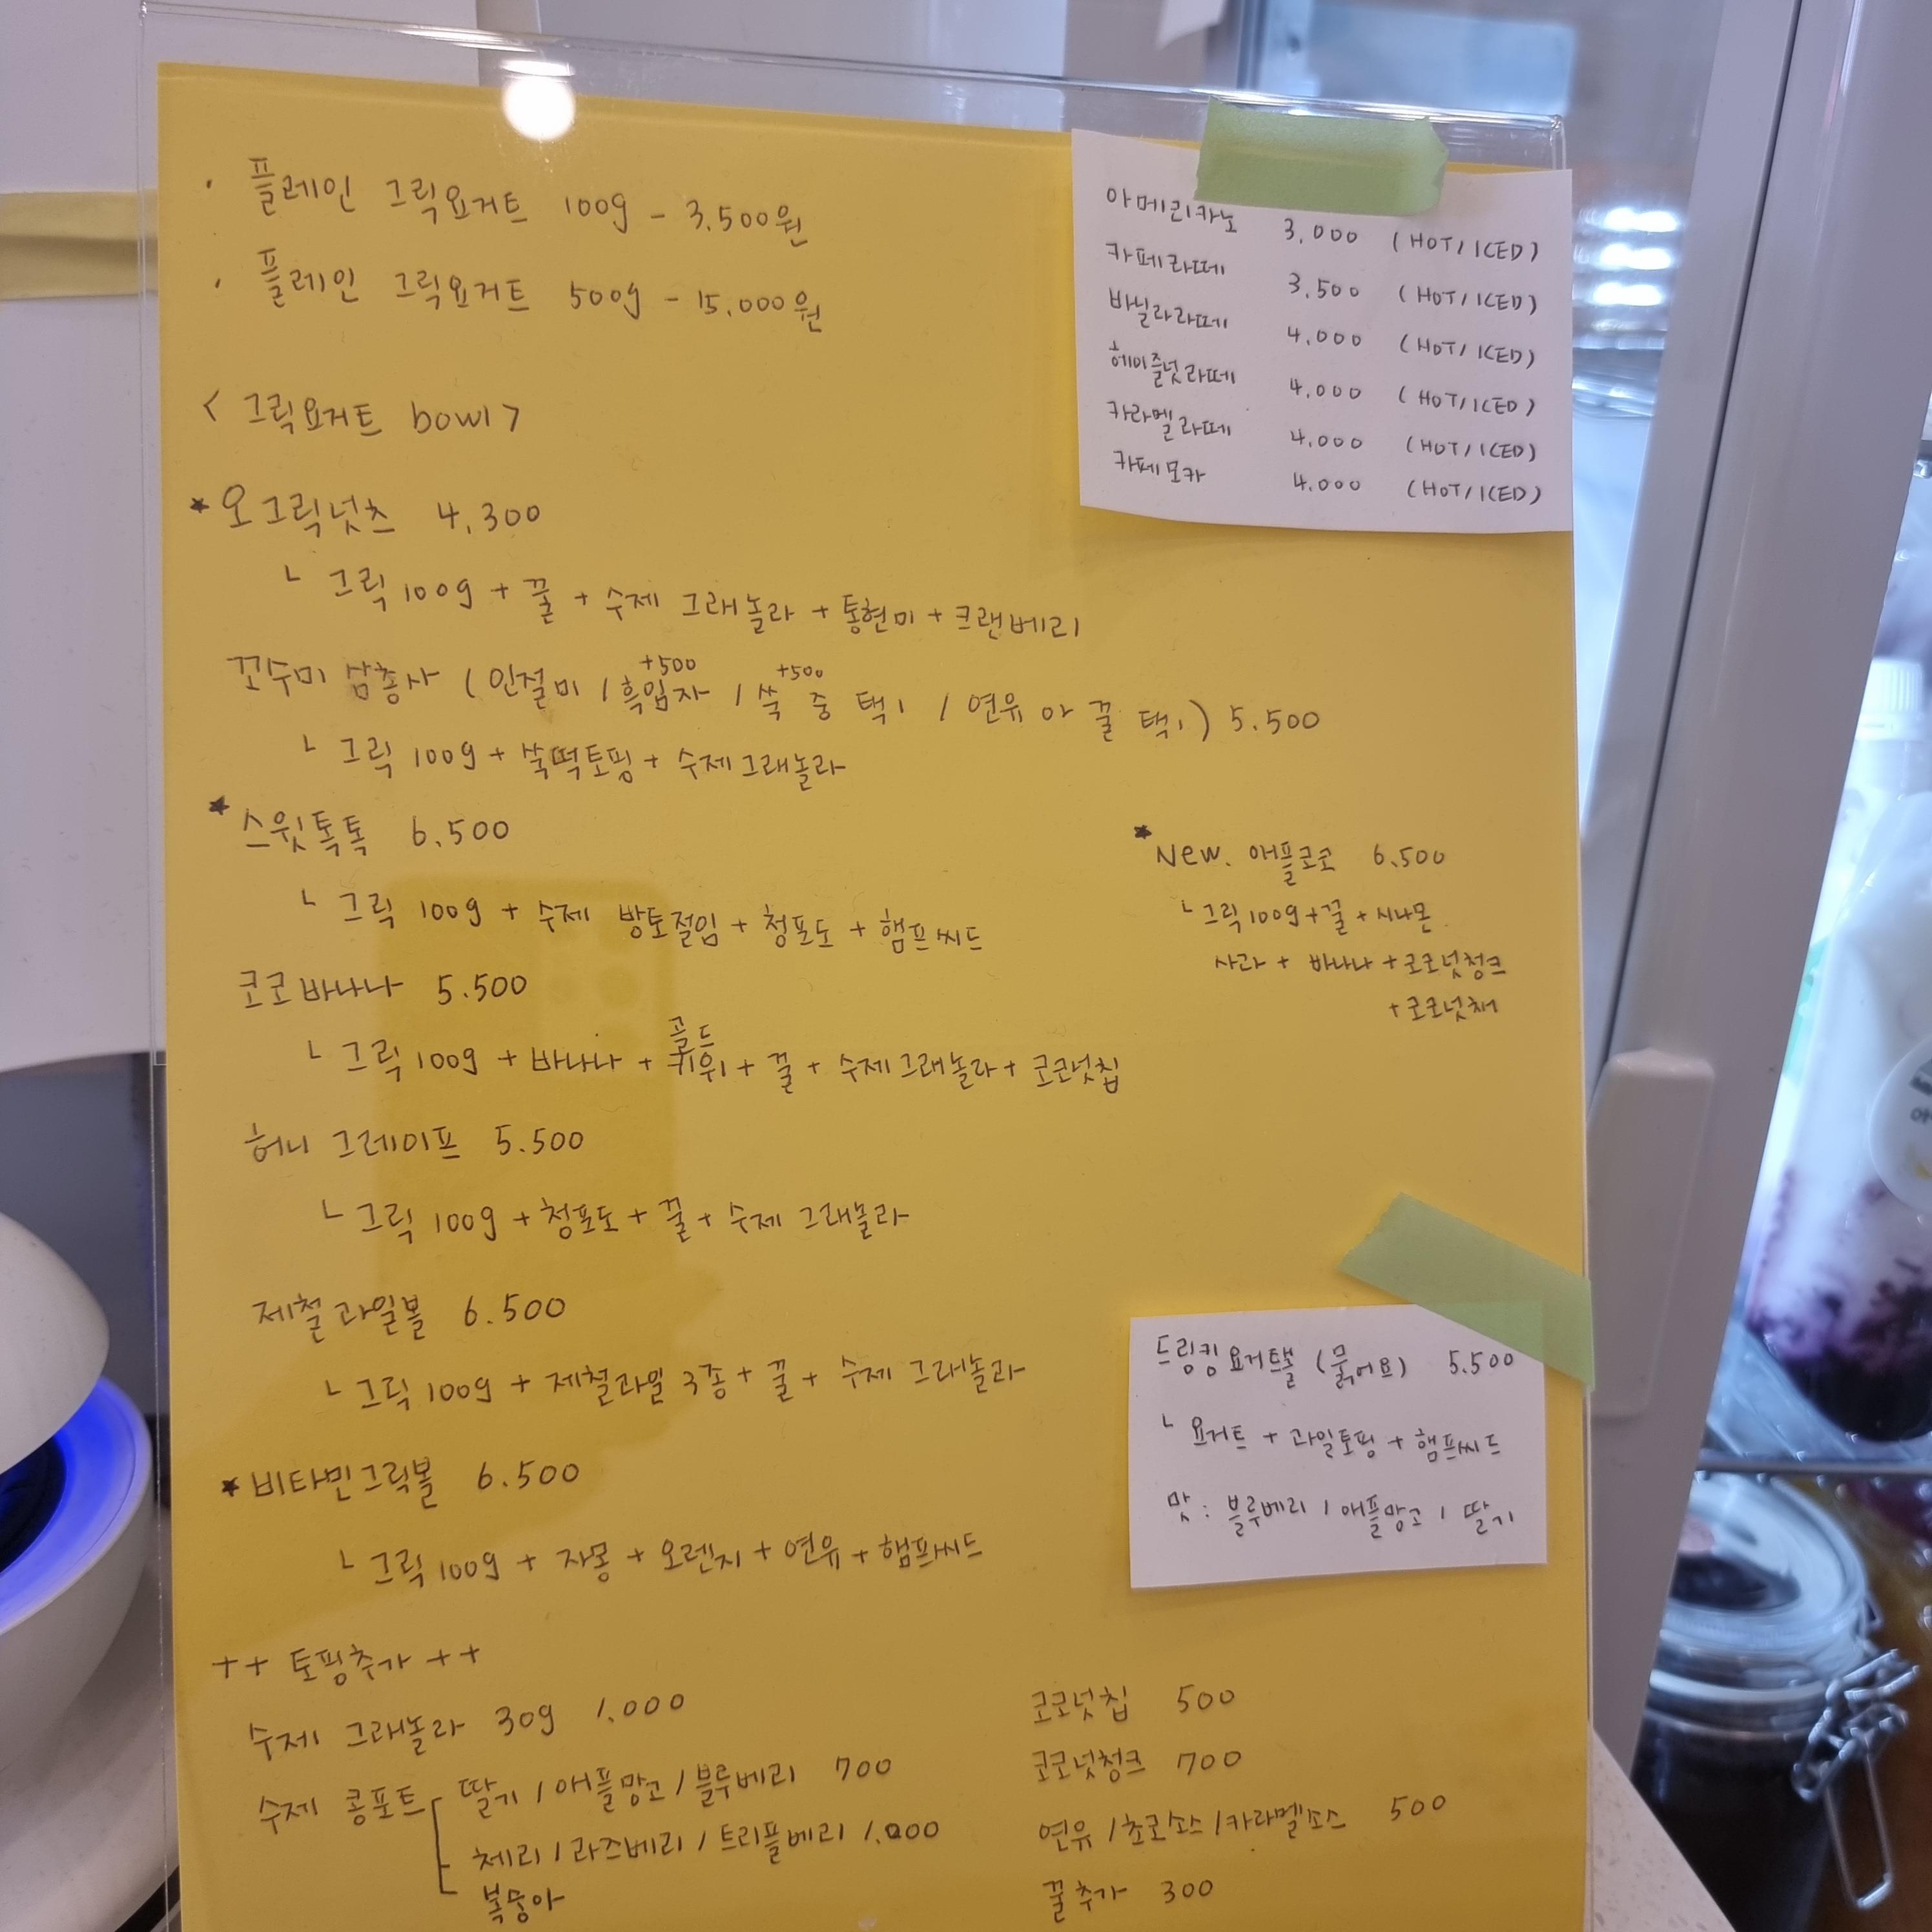 · 플레인 그릭요거트 100g - 3,500원
· 플레인 그릭요거트 500g - 15,000원
< 그릭요거트 bowl >
★ 오그릭넛츠 4,300
ㄴ 그릭 100g + 꿀 + 수제 그래놀라 + 통현미 + 크랜베리
+500 +500
꼬수미 삼총사 (인절미 / 흑임자 / 쑥 중 택1 / 연유 or 꿀 택1) 5.500
ㄴ 그릭 100g + 쑥떡토핑 + 수제그래놀라
★ 스윗톡톡 6.500
ㄴ 그릭 100g + 수제 방토절임 + 청포도 + 햄프씨드
코코바나나 5.500
골드
ㄴ 그릭 100g + 바나나 + 키위 + 꿀 + 수제그래놀라 + 코코넛칩
허니 그레이프 5.500
ㄴ 그릭 100g + 청포도 + 꿀 + 수제 그래놀라
제철과일볼 6.500
ㄴ 그릭 100g + 제철과일 3종 + 꿀 + 수제 그래놀라
★ 비타민그릭볼 6.500
ㄴ 그릭 100g + 자몽 + 오렌지 + 연유 + 햄프씨드
++ 토핑추가 ++
수제 그래놀라 30g 1.000
수제 콩포트 딸기 / 애플망고 / 블루베리 700
체리 / 라즈베리 / 트리플베리 1.000
복숭아
코코넛칩 500
코코넛청크 700
연유 / 초코소스 / 카라멜소스 500
꿀추가 300
아메리카노 3,000 (HOT / ICED)
카페라떼 3,500 (HOT / ICED)
바닐라라떼 4.000 (HOT / ICED)
헤이즐넛라떼 4.000 (HOT / ICED)
카라멜라떼 4.000 (HOT / ICED)
카페모카 4.000 (HOT / ICED)
★ New. 애플코코 6.500
ㄴ 그릭 100g + 꿀 + 시나몬
사과 + 바나나 + 코코넛청크
+ 코코넛채
드링킹 요거트볼 (묽어요) 5.500
ㄴ 요거트 + 과일토핑 + 햄프씨드
맛 : 블루베리 / 애플망고 / 딸기